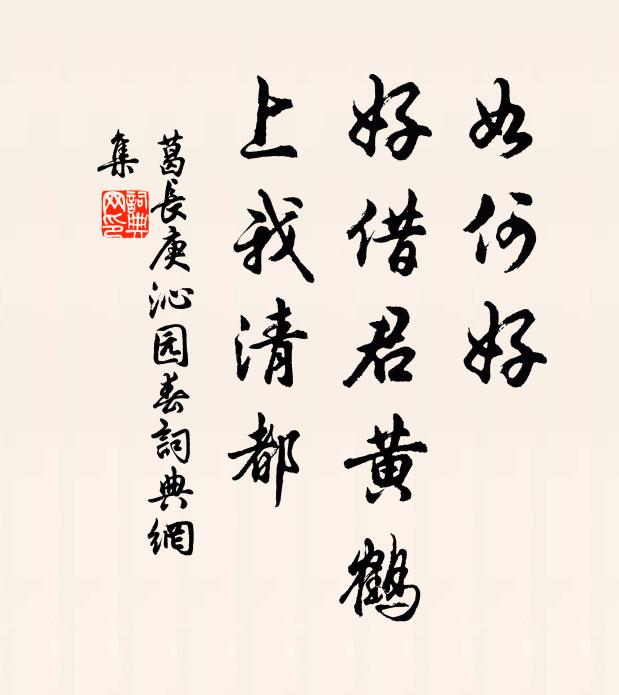 如何好
好借君黄鹤
上我清都
葛長庚沁园春詞典網
集
詞典
网印